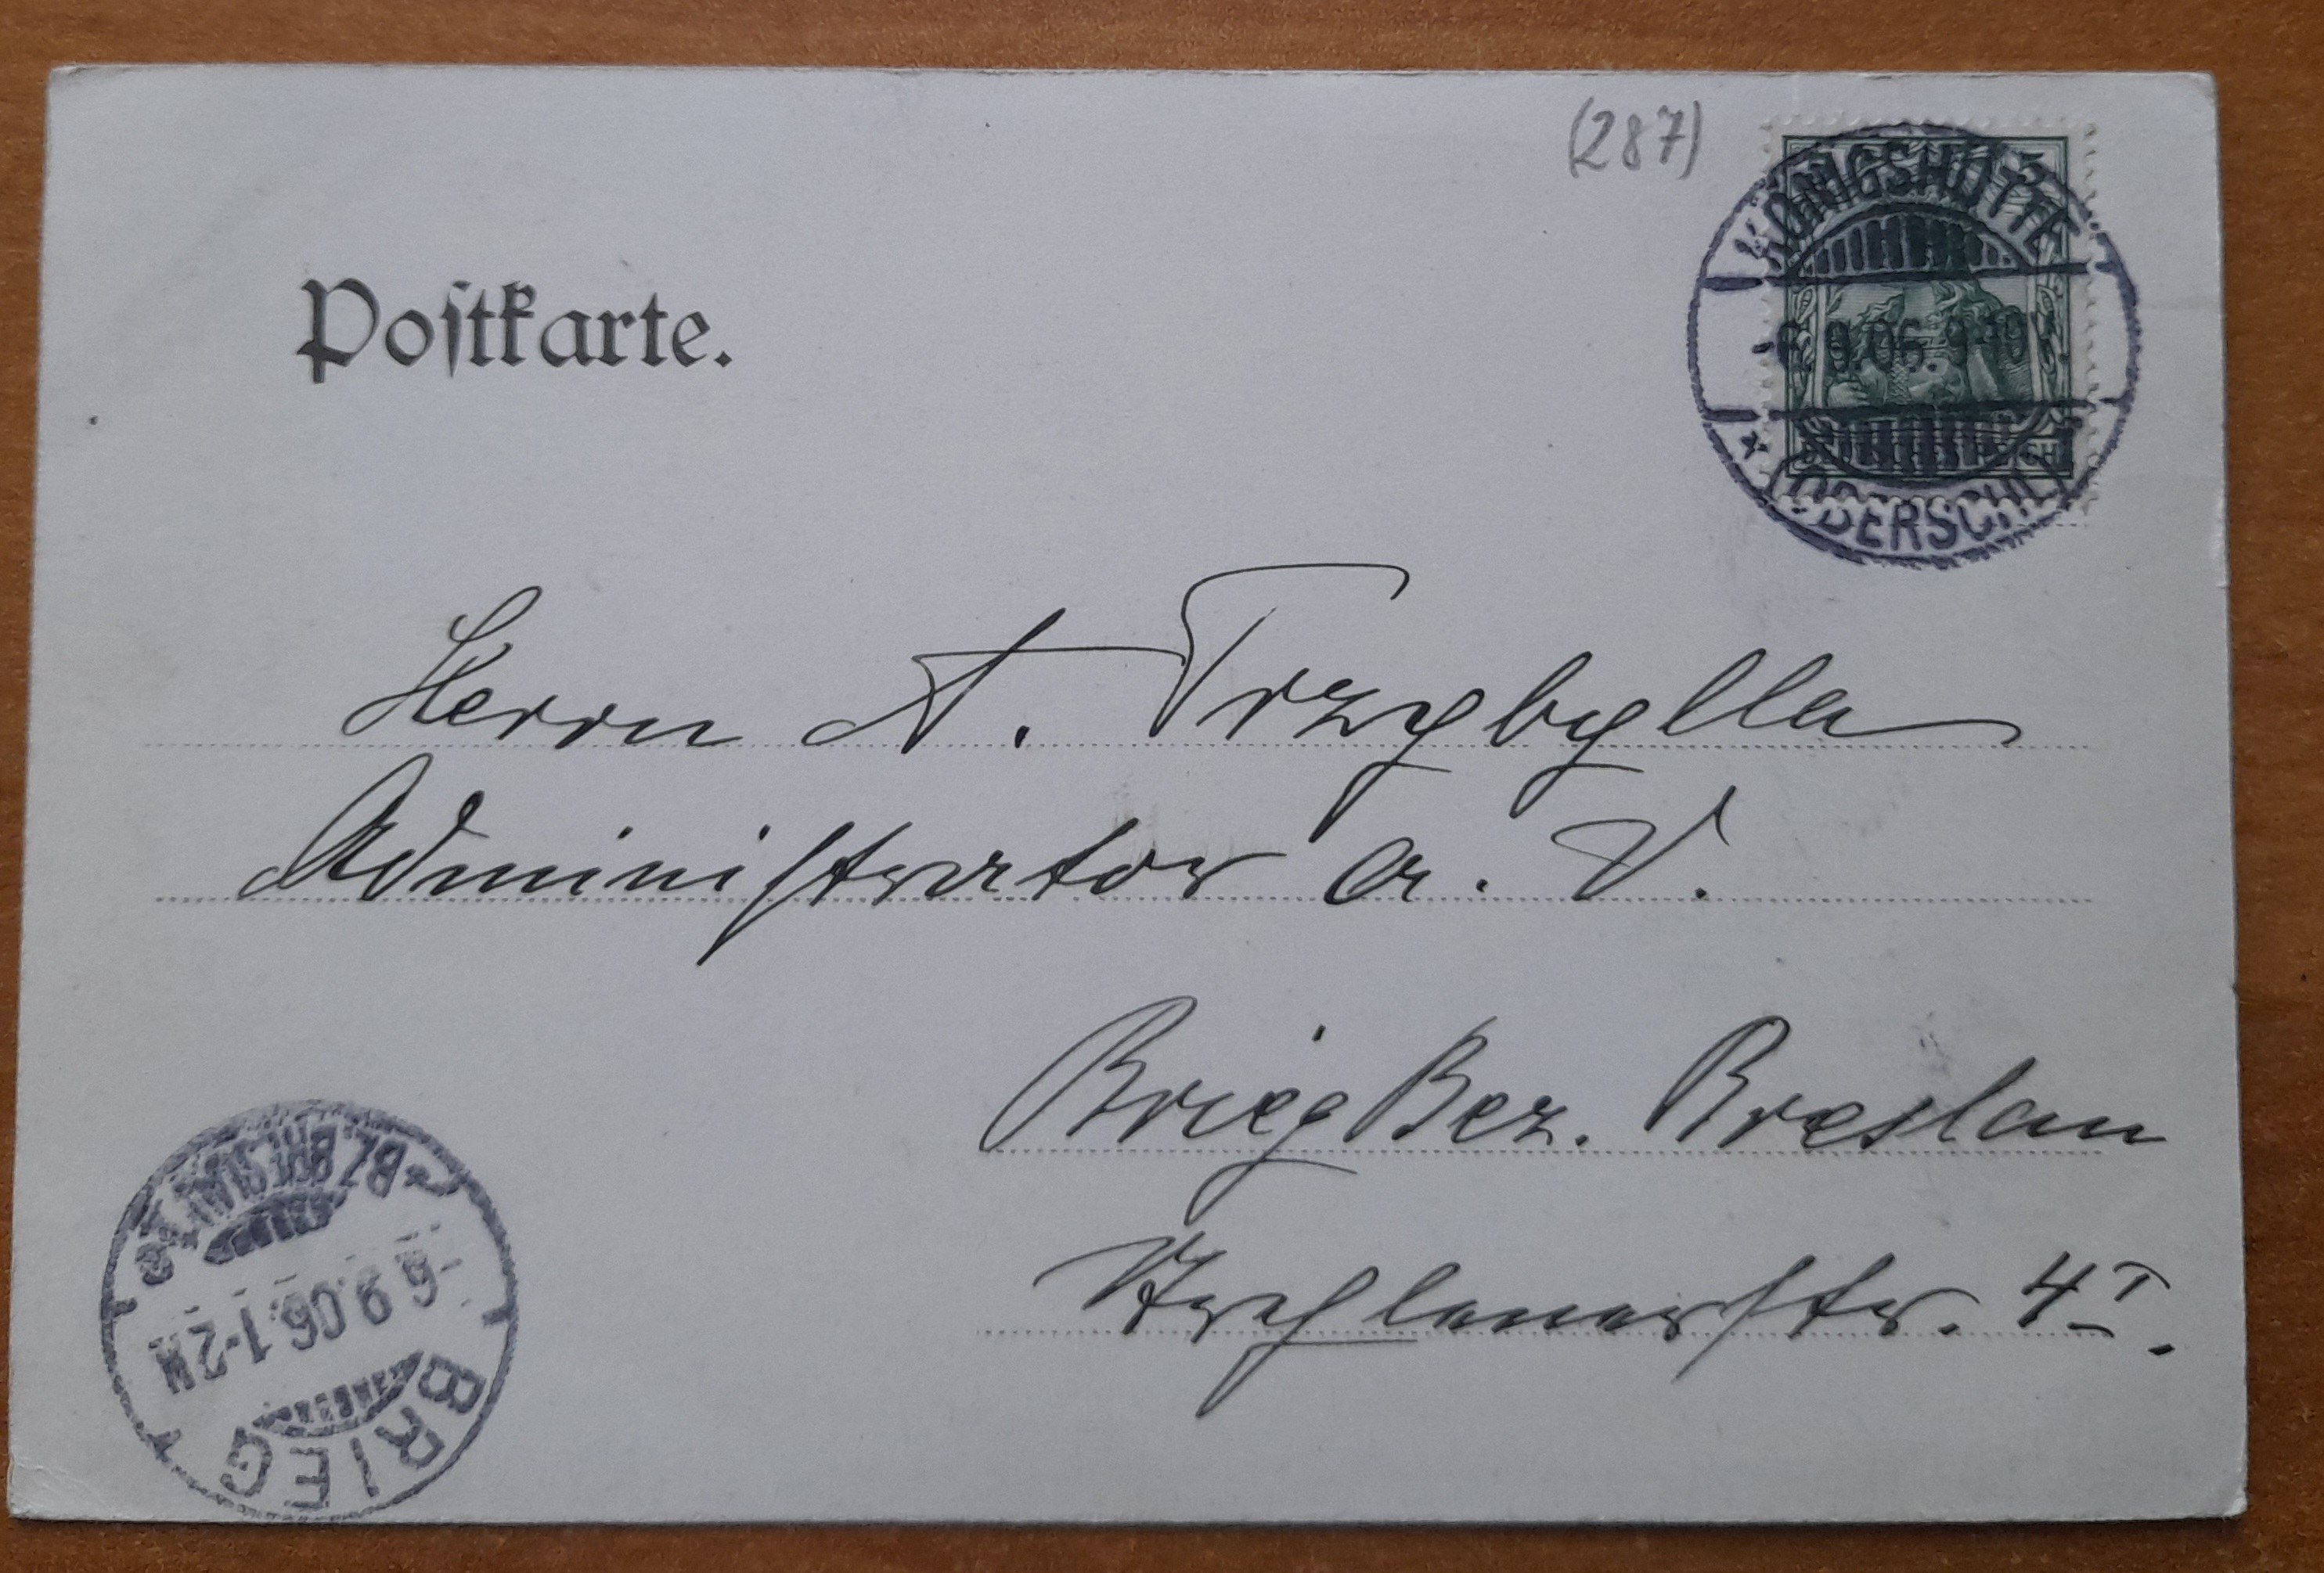 (287)
5
KÖNIGSHÜTTE
6.9.06.9-10
* (OBERSCHL)
Postkarte.
Herrn A. Trzybylla
Administrator a. D.
Brieg Bez. Breslau
str. 4 I.
BRIEG
-6.9.06.1-2N
* BZ. BRESLAU *